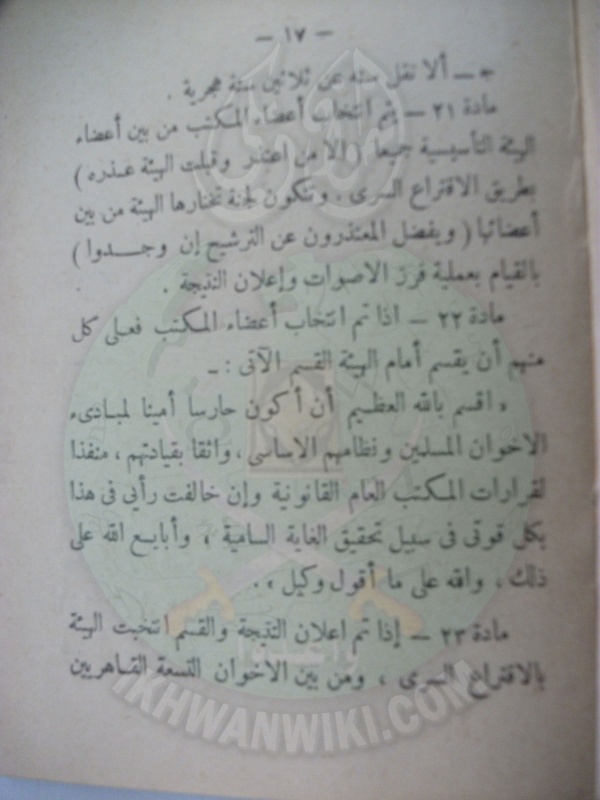 — ١٧ —
ج — ألا تقل سنه عن ثلاثين سنة هجرية .
مادة ٢١ — يتم انتخاب أعضاء المكتب من بين أعضاء
الهيئة التأسيسية جميعا ( إلا من اعتذر وقبلت الهيئة عذره )
بطريق الاقتراع السرى . وتتكون لجنة تختارها الهيئة من بين
أعضائها ( ويفضل المعتذرون عن الترشيح إن وجدوا )
بالقيام بعملية فرز الاصوات وإعلان النتيجة .
مادة ٢٢ — اذا تم انتخاب أعضاء المكتب فعلى كل
منهم أن يقسم أمام الهيئة القسم الآتى : —
« اقسم بالله العظيم أن أكون حارسا أمينا لمبادىء
الاخوان المسلمين ونظامهم الاساسى ، واثقا بقيادتهم ، منفذا
لقرارات المكتب العام القانونية وإن خالفت رأيى فى هذا
بكل قوتى فى سبيل تحقيق الغاية السامية ، وأبايع الله على
ذلك ، والله على ما أقول وكيل » .
مادة ٢٣ — إذا تم اعلان النتيجة والقسم انتخبت الهيئة
بالاقتراع السرى ، ومن بين الاخوان التسعة القاهريين
وأعدوا
IKHWANWIKI.COM